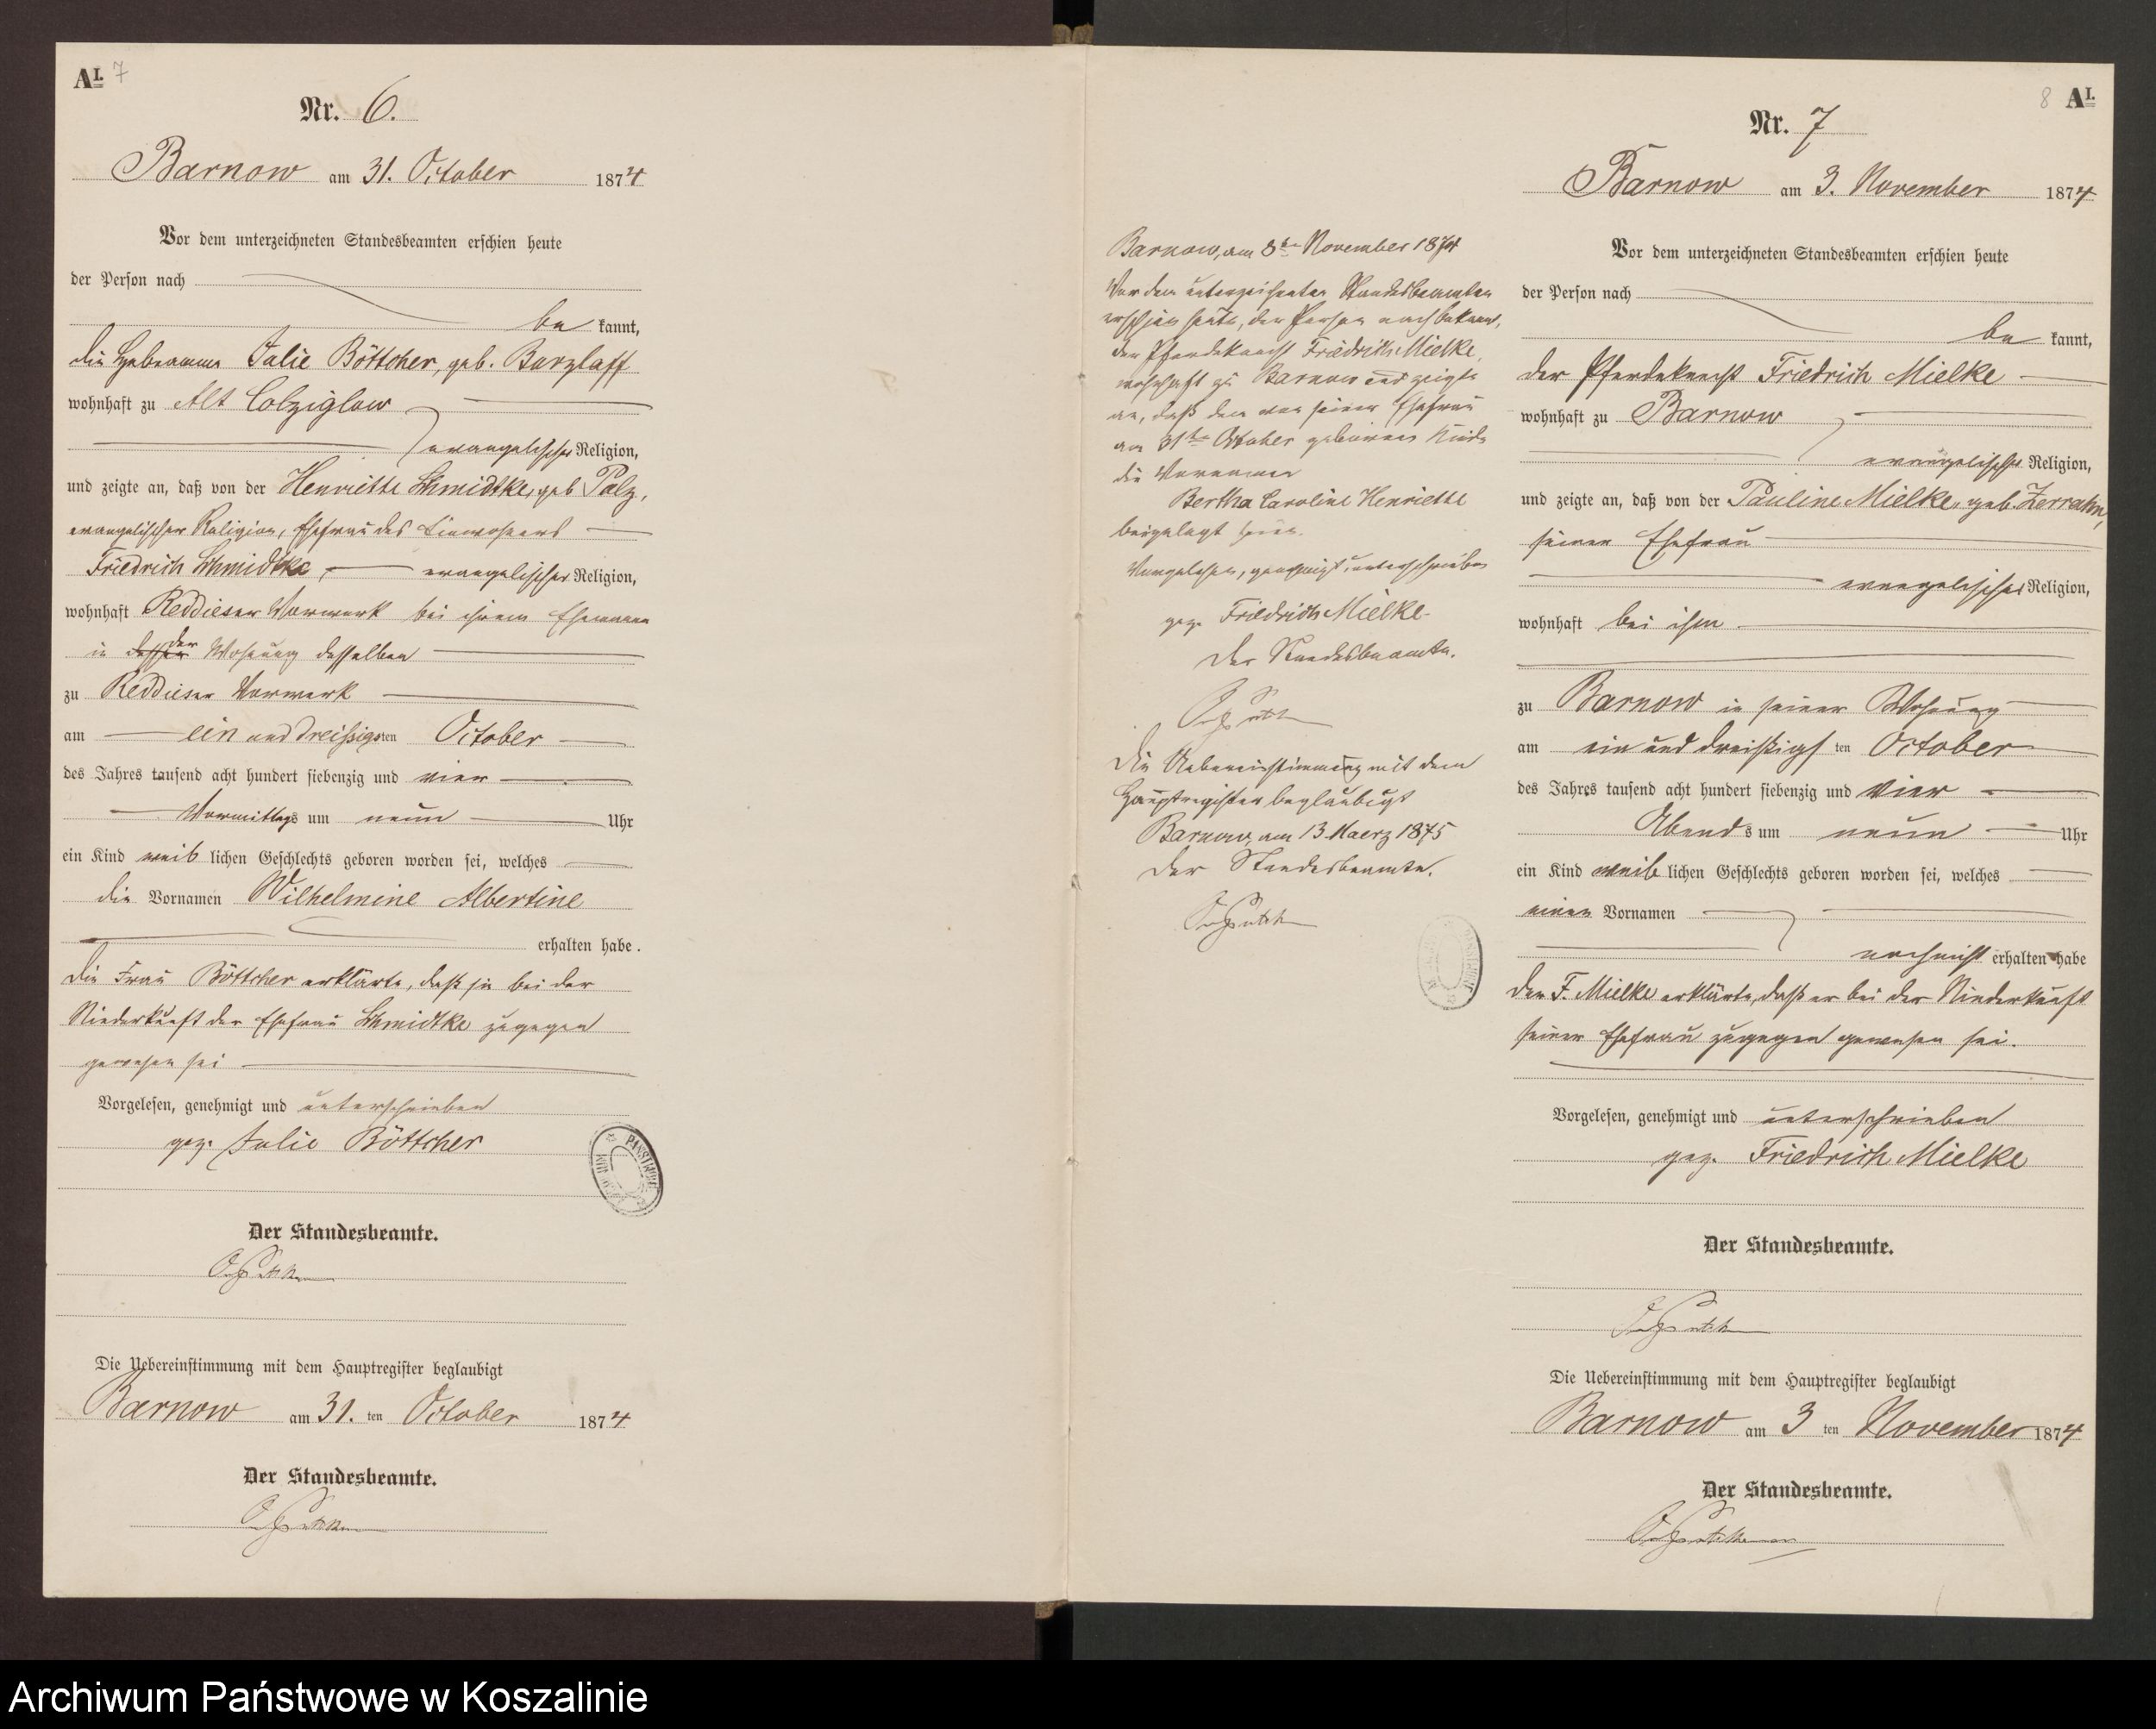 AI. 7
Nr. 6.
Barnow am 31. October 1874
Vor dem unterzeichneten Standesbeamten erschien heute
der Person nach
be kannt,
die Hebeamme Julie Böttcher, geb. Barzlaff
wohnhaft zu Alt Colziglow
evangelischer Religion,
und zeigte an, daß von der Henriette Schmidtke, geb Palz,
evangelischer Religion, Ehefrau des Einwohners
Friedrich Schmidtke, evangelischer Religion,
wohnhaft Reddieser Vorwerk bei ihrem Ehemann
in der Wohnung desselben
zu Reddieser Vorwerk
am ein und dreißigsten October
des Jahres tausend acht hundert siebenzig und vier
Vormittags um neun Uhr
ein Kind weib lichen Geschlechts geboren worden sei, welches
die Vornamen Wilhelmine Albertine
erhalten habe.
Die Frau Böttcher erklärte, daß sie bei der
Niederkunft der Ehefrau Schmidtke zugegen
gewesen sei
Vorgelesen, genehmigt und unterschrieben
gez. Julie Böttcher
Der Standesbeamte.
Die Uebereinstimmung mit dem Hauptregister beglaubigt
Barnow am 31. ten October 1874
Der Standesbeamte.
Barnow, am 8ten November 1874
Vor dem unterzeichneten Standesbeamten
erschien heute, der Person nach bekannt,
der Pferdeknecht Friedrich Mielke,
wohnhaft zu Barnow und zeigte
an, daß dem von seiner Ehefrau
am 31ten Oktober geborenen Kinde
die Vornamen
Bertha Caroline Henriette
beigelegt seien.
Vorgelesen, genehmigt, unterschrieben
gez. Friedrich Mielke
Der Standesbeamte.
Die Uebereinstimmung mit dem
Hauptregister beglaubigt
Barnow, am 13 Maerz 1875
Der Standesbeamte.
8 AI.
Nr. 7
Barnow am 3. November 1874
Vor dem unterzeichneten Standesbeamten erschien heute
der Person nach
be kannt,
der Pferdeknecht Friedrich Mielke
wohnhaft zu Barnow
evangelischer Religion,
und zeigte an, daß von der Pauline Mielke, geb. Zerrahn,
seiner Ehefrau
evangelischer Religion,
wohnhaft bei ihm
zu Barnow in seiner Wohnung
am ein und dreißigs ten October
des Jahres tausend acht hundert siebenzig und vier
Abends um neun Uhr
ein Kind weib lichen Geschlechts geboren worden sei, welches
einen Vornamen
noch nicht erhalten habe
Der F. Mielke erklärte, daß er bei der Niederkunft
seiner Ehefrau zugegen gewesen sei.
Vorgelesen, genehmigt und unterschrieben
gez. Friedrich Mielke
Der Standesbeamte.
Die Uebereinstimmung mit dem Hauptregister beglaubigt
Barnow am 3 ten November 1874
Der Standesbeamte.
Archiwum Państwowe w Koszalinie